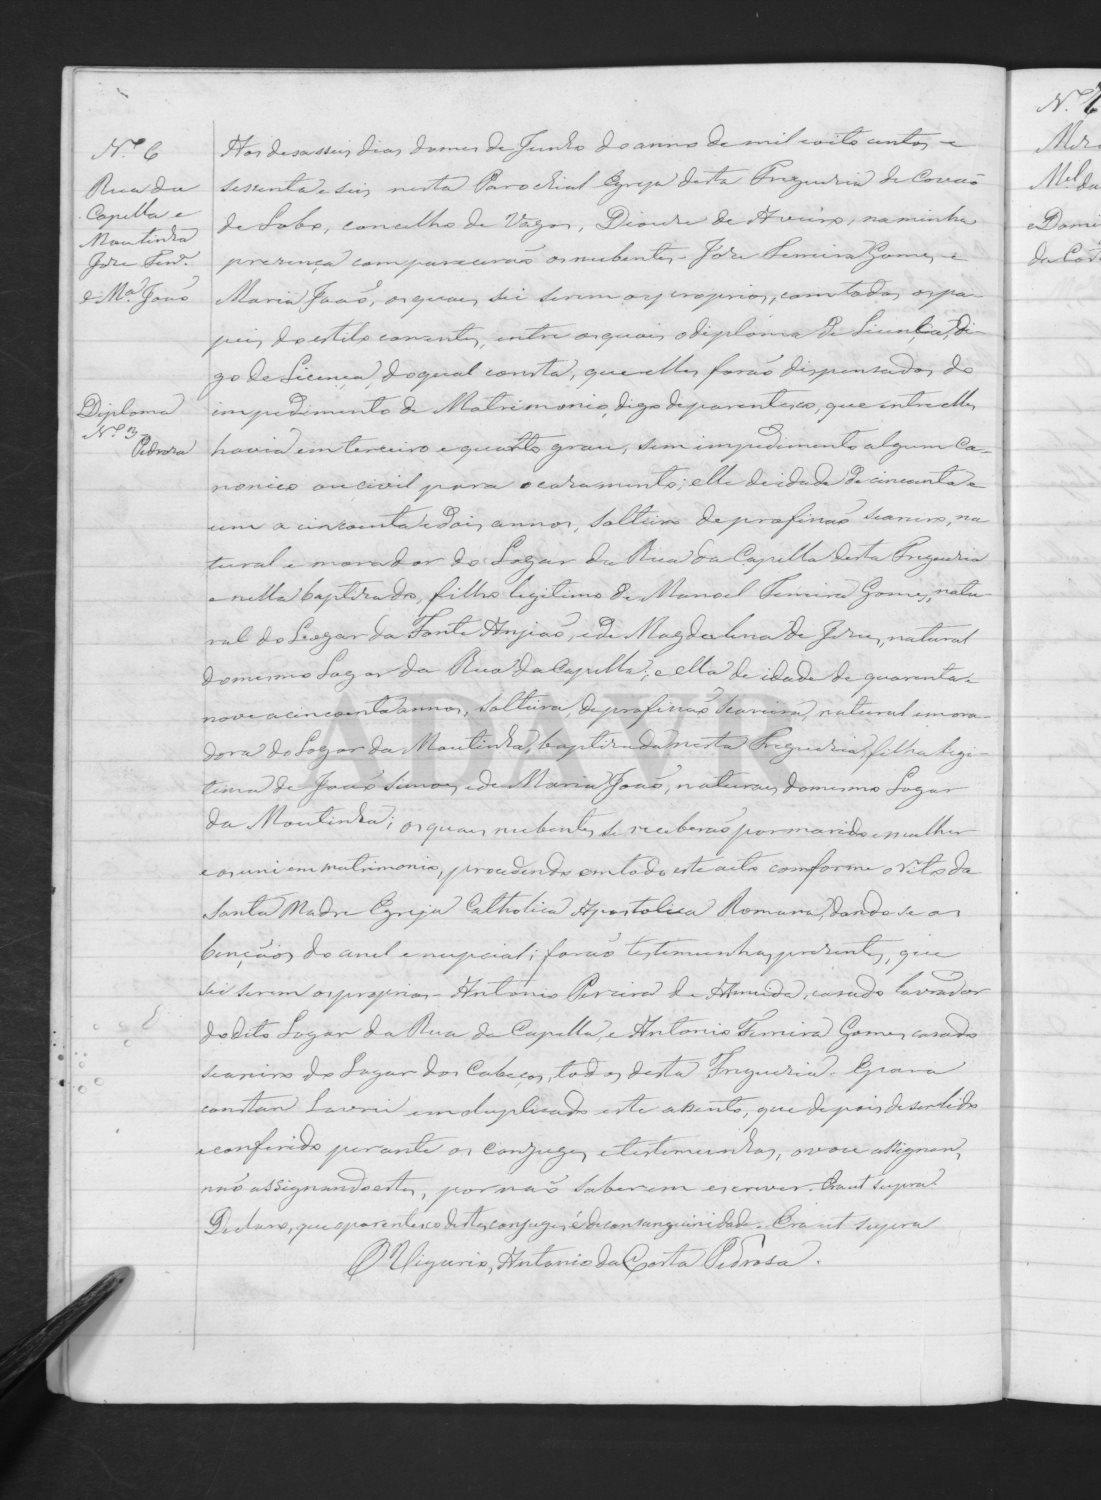 N.º 6
Rua da
Capella e
Moutinha
Jose Ferr.ª
e M.ª João
Diploma
N.º 3
Pedroza
Aos desasseis dias do mes de Junho do anno de mil oito centos e
sessenta e seis, nesta Parochial Egreja desta Freguezia de Covão
do Lobo, concelho de Vagos, Diocese de Aveiro, na minha
prezença comparecerão os nubentes Jose Ferreira Gomes e
Maria João, os quaes sei serem os proprios, com todos os pa-
peis do estilo correntes, entre os quaes o diploma de Licencia, di-
go de Licença, do qual consta, que elles forão dispensados do
impedimento de Matrimonio, digo de parentesco, que entre elles
havia em terceiro e quarto grau, sem impedimento algum ca-
nonico ou civil para o cazamento; elle de idade de cincoenta e
um a cincoenta e dois annos, solteiro de profissão seareiro, na
tural e morador do Logar da Rua da Capella desta Freguezia
e nella baptizado, filho legitimo de Manoel Ferreira Gomes, natu-
ral do Logar da Fonte Anjião, e de Magdalena de Jezus, natural
do mesmo Logar da Rua da Capella; e ella de idade de quarenta e
nove a cincoenta annos, solteira, de profissão seareira, natural e mora-
dora do Logar da Moutinha, baptizada nesta Freguezia, filha legi-
tima de João Simoes, e de Maria João, naturaes do mesmo Logar
da Moutinha; os quaes nubentes se receberão por marido e mulher
e os uni em matrimonio, procedendo em todo este acto comforme o rito da
Santa Madre Egreja Catholica Apostolica Romana, dando se as
bençãos do anel e nupcial; forão testemunhas prezentes, que
sei serem os proprios - Antonio Pereira de Almeida, casado lavrador
do dito Logar da Rua da Capella, e Antonio Ferreira Gomes, casado
seareiro do Logar dos Cabeços, todos desta Freguezia. E para
constar Lavrei em duplicado este assento, que depois de ser lido
e conferido perante os conjuges e testemunhas, o vou assignar,
não assignando estes, por não saberem escrever. Era ut supra.
Declaro, que o parentesco destes conjuges, é de consanguinidade. Era ut supra
O Vigario, Antonio da Costa Pedrosa.
N.º 7
ADAVR